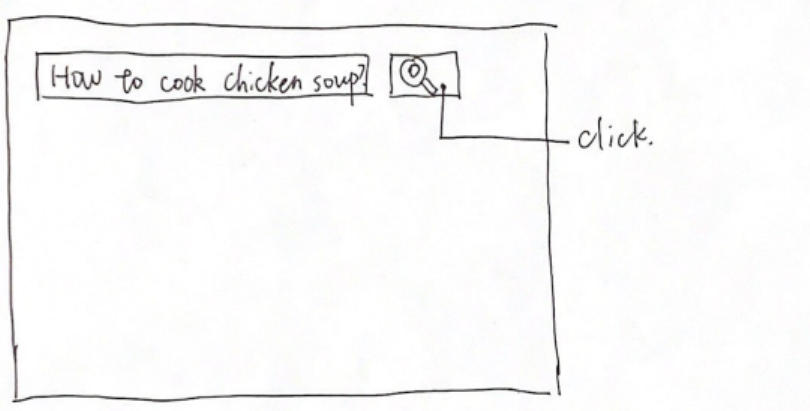 How to cook chicken soup?
click.